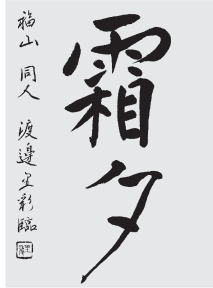 霜夕
福山 同人 渡邊 臨